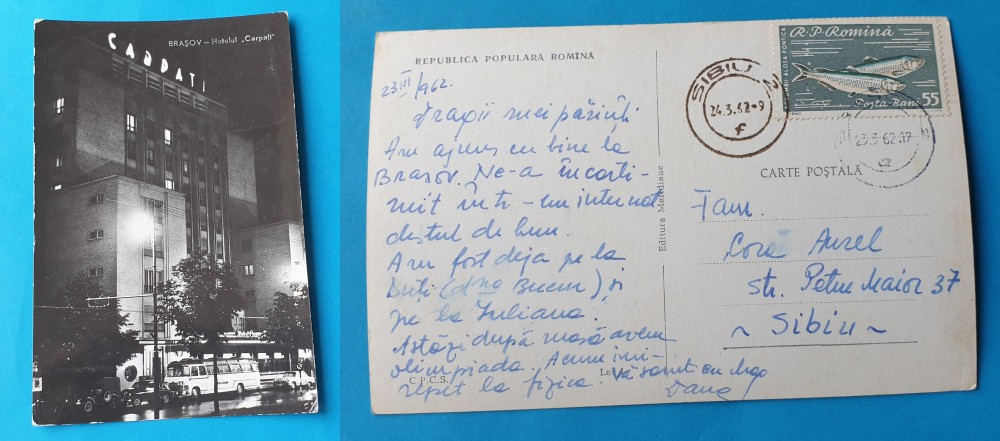 CARPAȚI
BRAȘOV – Hotelul „Carpați”
REPUBLICA POPULARA ROMÎNĂ
23 III/962.
Dragii mei părinți
Am ajuns cu bine la
Brașov. Ne-a încarti-
ruit într-un internat
destul de bun.
Am fost deja pe la
Duți (d-na Bucur) și
pe la Iuliana.
Astăzi după masă avem
olimpiada. Acum îmi
repet la fizica. Vă sărut cu drag
Dana
C.P.C.S.
Editura Meridiane
R.P.Romînă
ALOSA PONTICA
Posta Bani 55
SIBIU 2
24.3.62-9
f
23.3.62.17
CARTE POȘTALĂ
Fam.
Aurel
str. Petru Maior 37
~ Sibiu ~